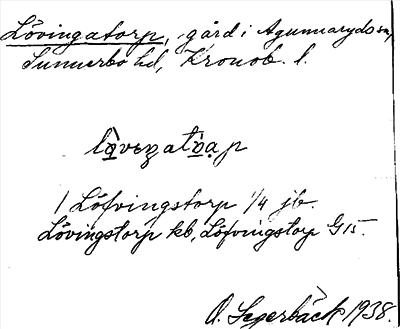 Lövingatorp, gård i Agunnaryds sn,
Sunnerbo hd, Kronob. l.
1 Löfvingstorp 1/4 jb.
Lövingstorp kb, Löfvingstorp G15.
O. Segerbäck 1938.